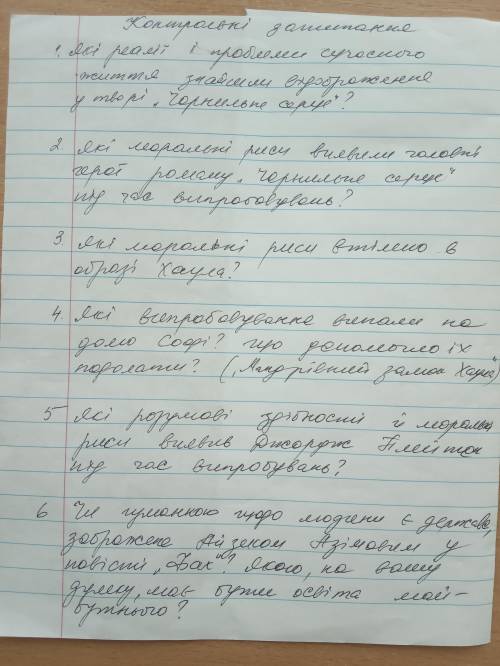 Контрольні запитання
1. Які реалії і проблеми сучасного
життя знайшли відображення
у творі „Чорнильне серце"?
2. Які моральні риси виявили головні
герої роману „Чорнильне серце"
під час випробовувань?
3. Які моральні риси втілено в
образі Хаула?
4. Які випробовування випали на
долю Софі? Що допомогло їх
подолати? („Мандрівний замок Хаула")
5 Які розумові здібності й моральні
риси виявив Джордж Плейтен
під час випробувань?
6 Чи гуманною щодо людини є держава,
зображена Айзеком Азімовим у
повісті „Фах"? Якою, на вашу
думку, має бути освіта май-
бутнього?